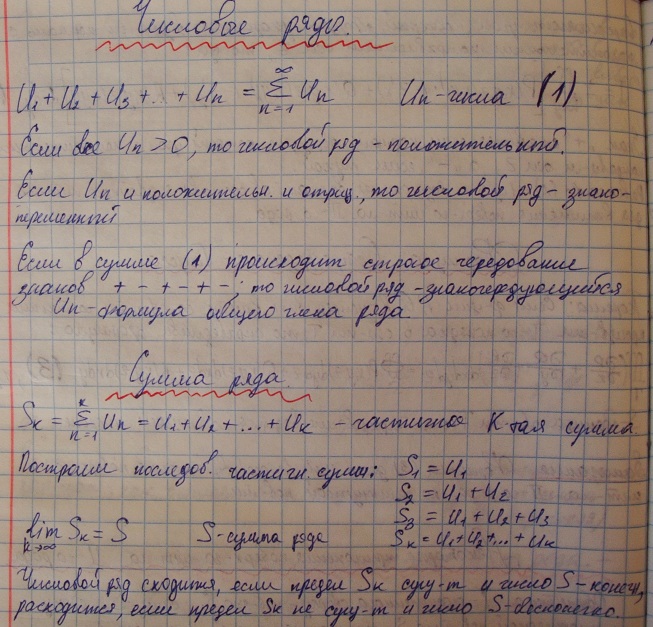 Числовые ряды.
U₁ + U₂ + U₃ + ... + Uₙ = ∑ₙ₌₁^∞ Uₙ Uₙ - числа (1)
Если все Uₙ > 0, то числовой ряд - положительный.
Если Uₙ и положительн. и отриц., то числовой ряд - знако-
переменный
Если в сумме (1) происходит строгое чередование
знаков + - + - + -, то числовой ряд - знакочередующейся
Uₙ - формула общего члена ряда
Сумма ряда.
Sₖ = ∑ₙ₌₁^k Uₙ = U₁ + U₂ + ... + Uₖ - частичная К-тая сумма
Построим последов. частичн. сумм: S₁ = U₁
S₂ = U₁ + U₂
S₃ = U₁ + U₂ + U₃
lim k→∞ Sₖ = S S - сумма ряда Sₖ = U₁ + U₂ + ... + Uₖ
Числовой ряд сходится, если предел Sₖ сущ-т и число S - конечн,
расходится, если предел Sₖ не сущ-т и число S - бесконечно.